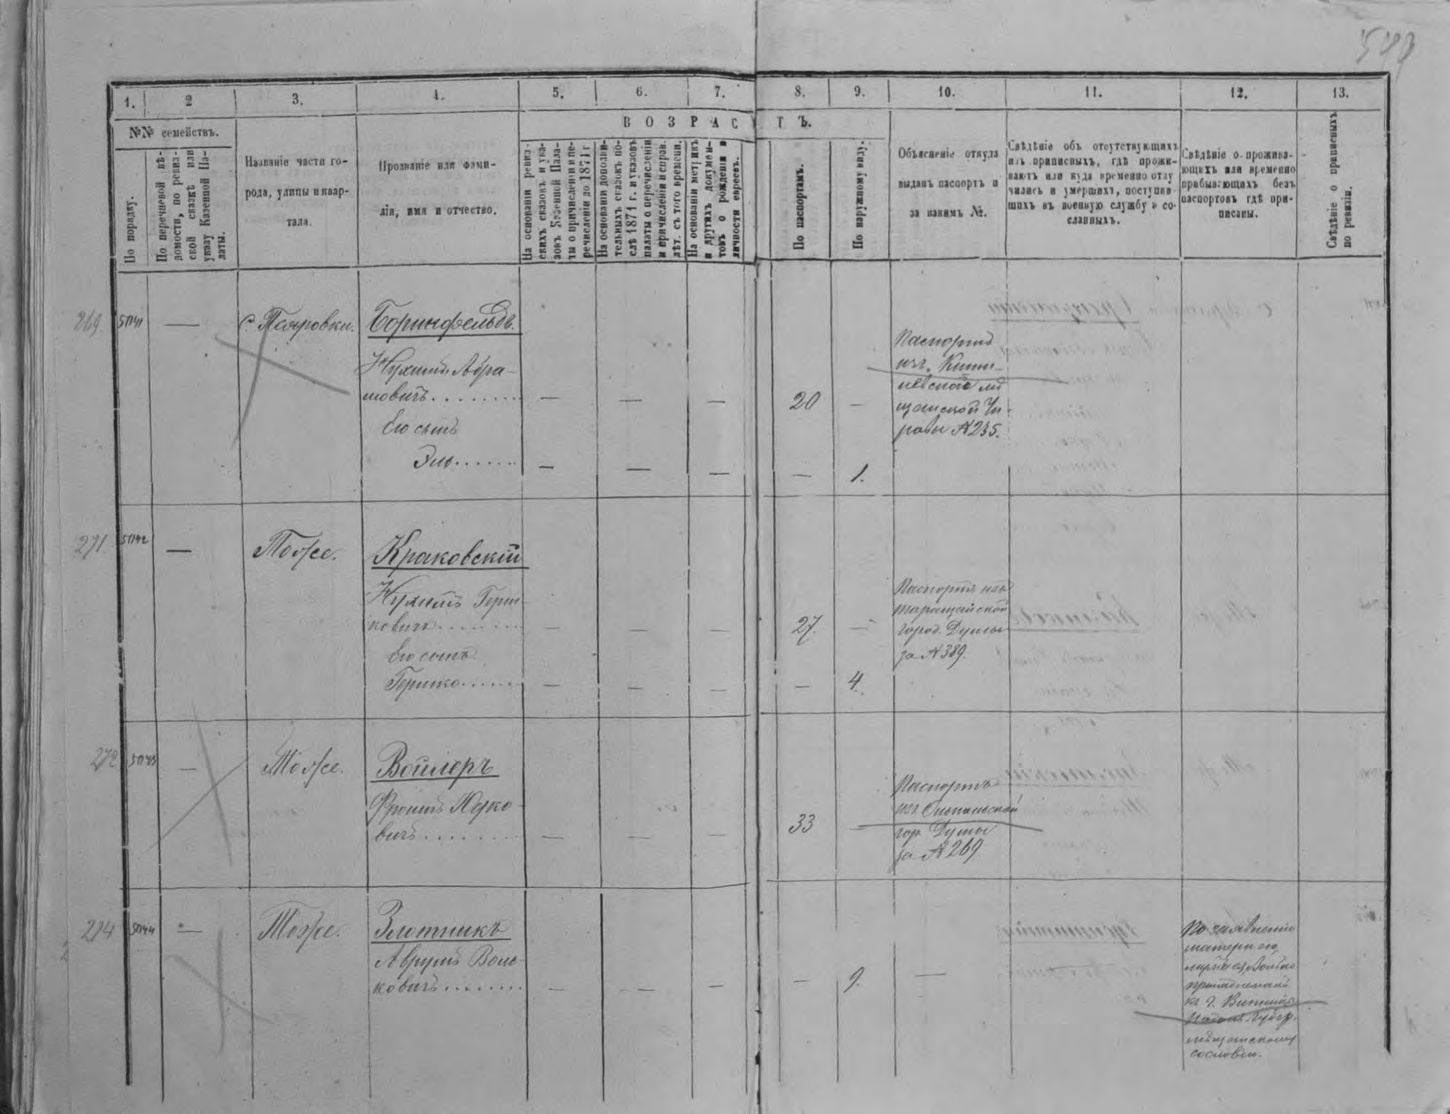 1.
2
3.
4.
5.
6.
7.
8.
9.
10.
11.
12.
13.
№№ семействъ.
ВОЗРАСТЪ.
По порядку.
По перечневой вѣ-
домости, по ревиз-
ской сказкѣ или
указу Казенной Па-
латы.
Названіе части го-
рода, улицы и квар-
тала.
Прозваніе или фами-
лія, имя и отчество.
На основаніи ревиз-
скихъ сказокъ и ука-
зовъ Казенной Пала-
ты о причисленіи и пе-
речисленіи до 1871 г
На основаніи дополни-
тельныхъ сказокъ по-
слѣ 1871 г. и указовъ
палаты о перечисленіи
и причисленіи и справ.
лѣт. съ того времени.
На основаніи метрикъ
и другихъ докумен-
товъ о рожденіи и
личности евреевъ.
По паспортамъ.
По наружному виду.
Объясненіе откуда
выданъ паспортъ и
за какимъ №.
Свѣдѣніе объ отсутствующихъ
изъ приписныхъ, гдѣ прожи-
ваютъ или куда временно отлу
чились и умершихъ, поступив-
шихъ въ военную службу и со-
сланныхъ.
Свѣдѣніе о прожива-
ющихъ или временно
прибывающихъ безъ
паспортовъ гдѣ при-
писаны.
Свѣдѣніе о приписныхъ
по ревизіи.
269
51141
—
Боринфельдъ.
Нухимъ Абра-
мовичъ
— — —
20
—
Паспортъ
изъ Киши-
невской мѣ
щанской Уп-
равы № 235.
Его сынъ
Эль
— — — —
1.
271
51142
—
Тоже.
Краковскій
Нухимъ Герш-
ковичъ
— — —
27.
—
Паспортъ изъ
таращанской
город. Думы
за № 389.
Его сынъ
Гершко
— — — —
4.
272
51143
—
Тоже.
Войлеръ
Фроимъ Юдко-
вичъ
— — —
33
—
Паспортъ
гор. Думы
за № 269
274
51144
—
Тоже.
Злотникъ
Аврумъ Воль-
ковичъ
— — — —
9.
—
По заявленію
матери его,
къ г. Винницѣ
мѣщанскому
сословію.